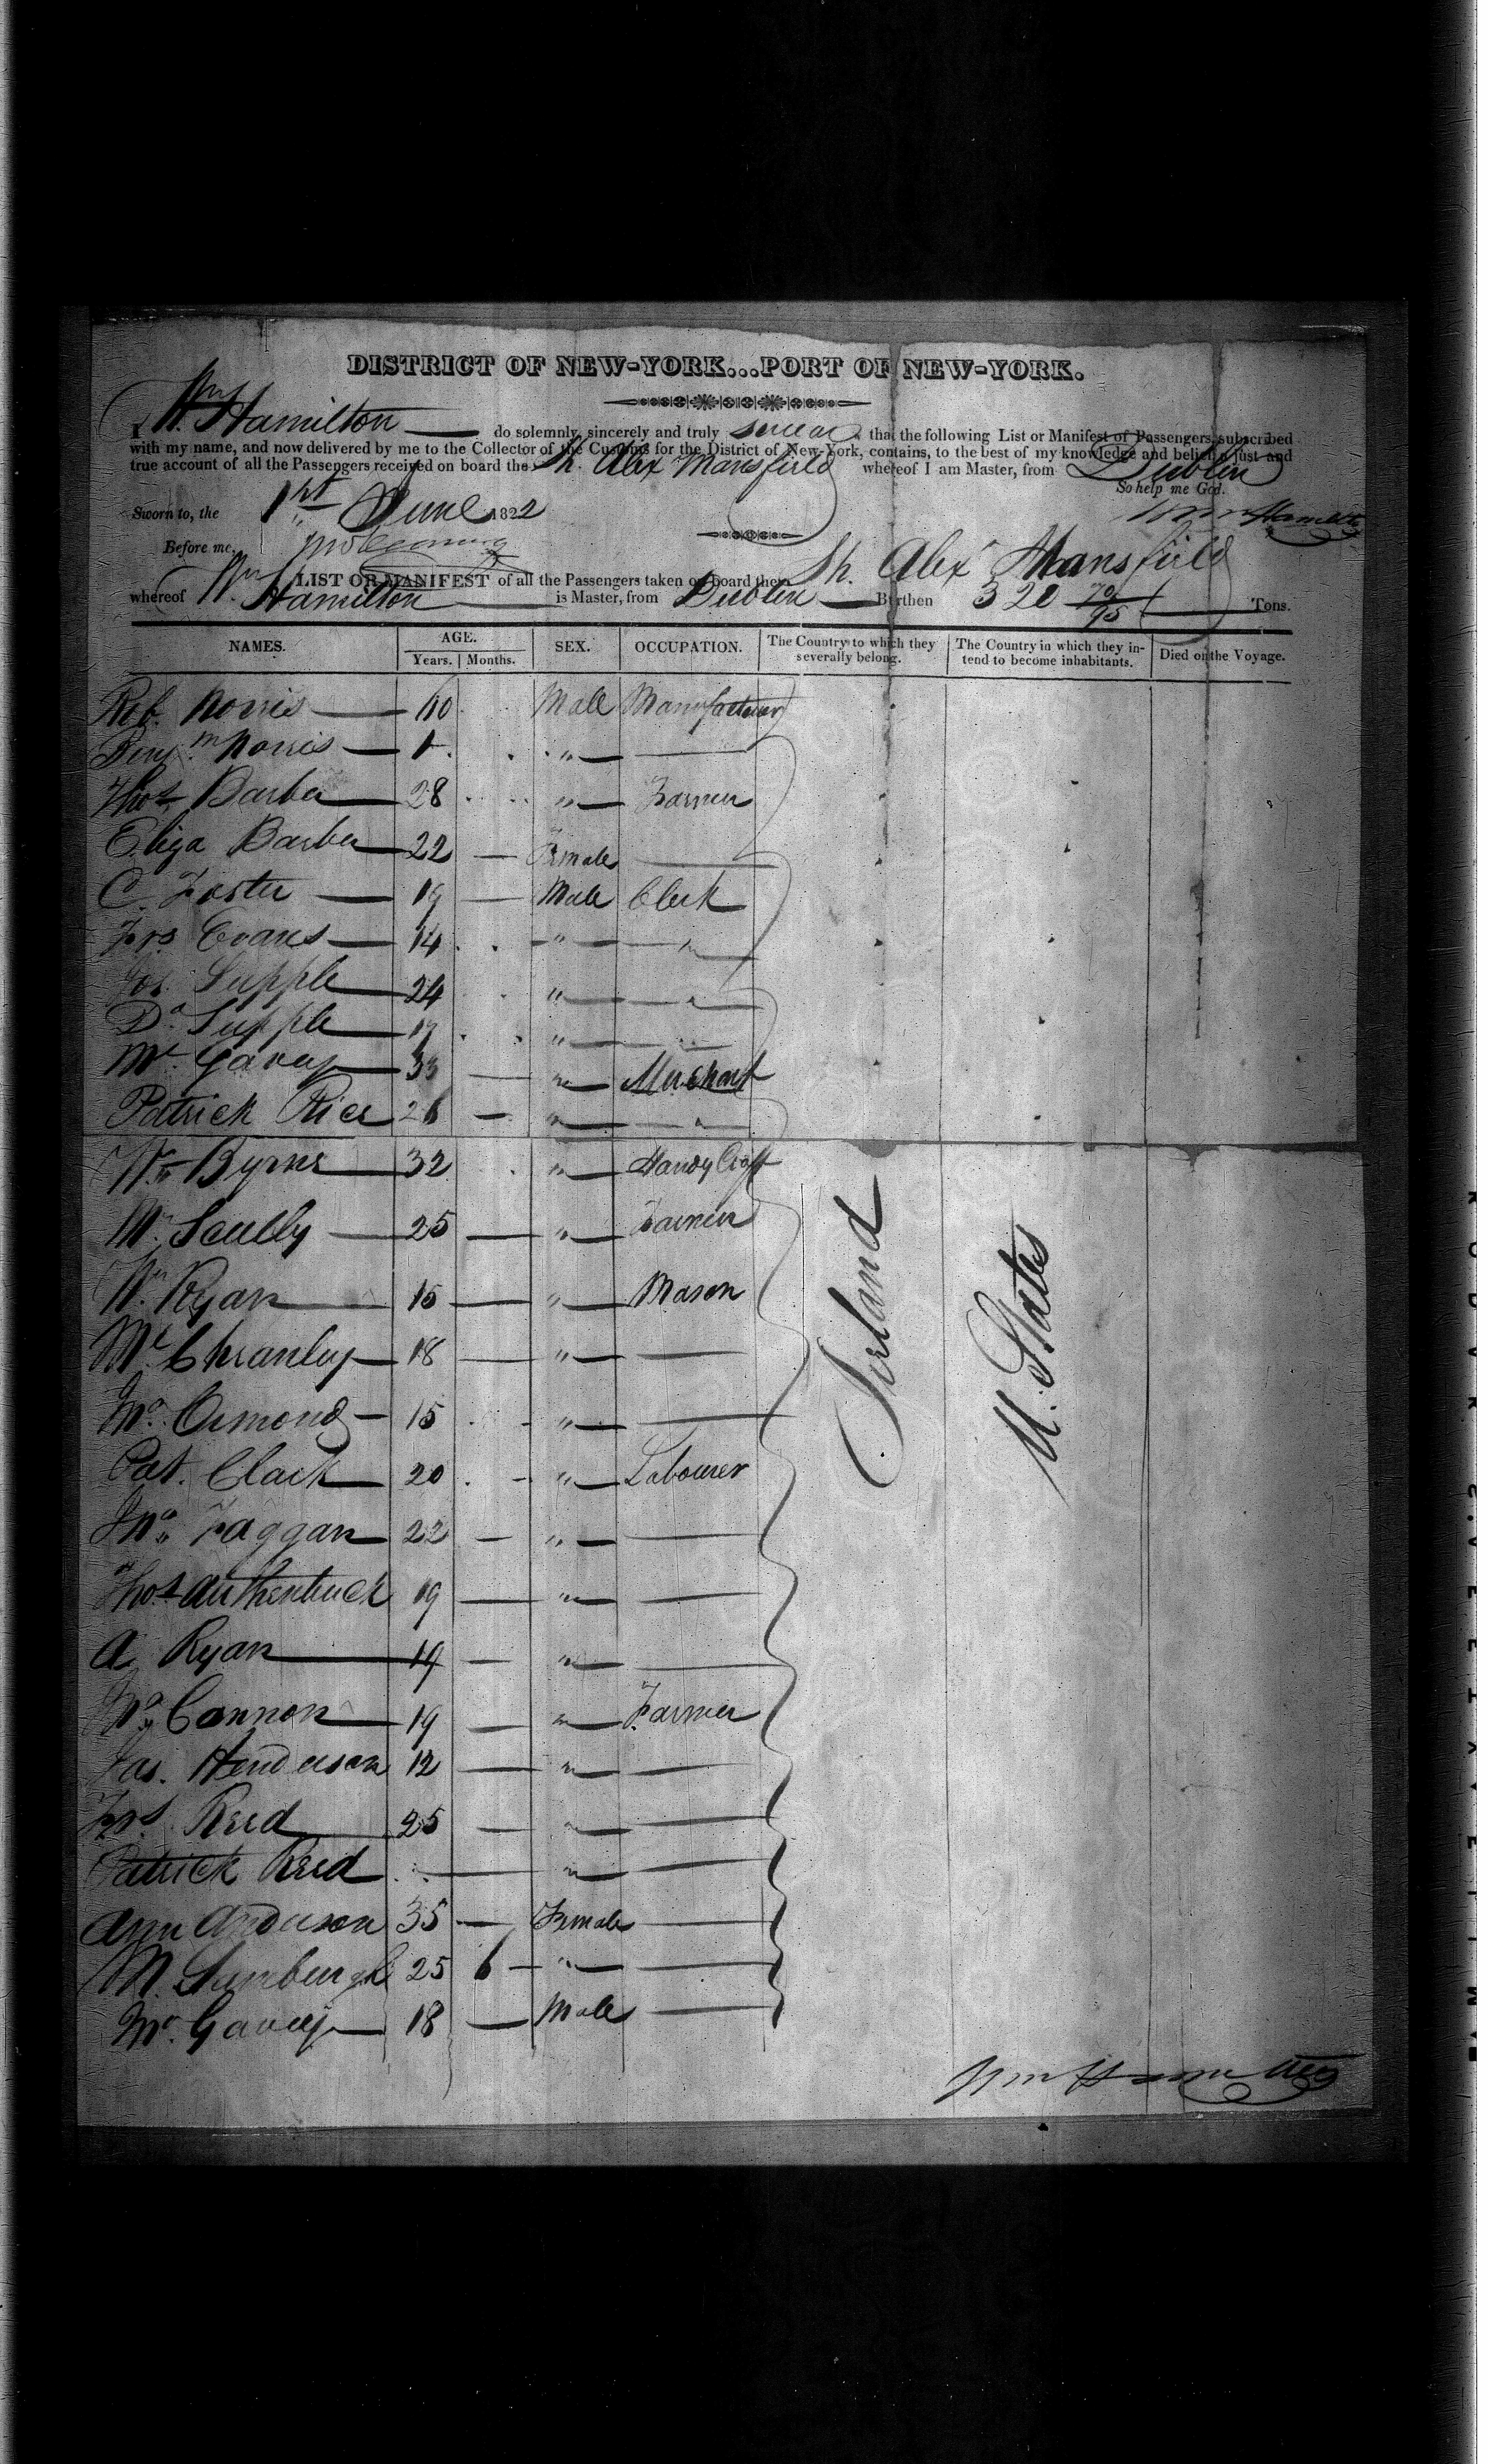 DISTRICT OF NEW-YORK...PORT OF NEW-YORK.
I Wm Hamilton do solemnly, sincerely and truly swear that the following List or Manifest of Passengers, subscribed
with my name, and now delivered by me to the Collector of the Customs for the District of New-York, contains, to the best of my knowledge and belief, a just and
true account of all the Passengers received on board the Sh. Alex Mansfield whereof I am Master, from Dublin
So help me God.
Sworn to, the 1st June 1822
Wm Hamilton
Before me,
LIST OR MANIFEST of all the Passengers taken on board the Sh. Alexr Mansfield
whereof Wm Hamilton is Master, from Dublin Burthen 320 70/95 Tons.
NAMES. AGE. SEX. OCCUPATION. The Country to which they severally belong. The Country in which they intend to become inhabitants. Died on the Voyage.
Years. Months.
Rob. Norris 40 Male Manufacturer
Benjm Norris 1 "
Thos Barber 28 " Farmer
Eliza Barber 22 Female
C. Foster 19 Male Clerk
Frs Evans 14 " "
Jos. Supple 24 " "
Do Supple 19 "
Mt. Gavey 33 " Merchant
Patrick Rice 26 " "
Wm Byrne 32 " Handy Craft
Wm Scully 25 " Farmer
Wm Ryan 15 " Mason
Chranley 18 "
Jno. Ormond 15 "
Pat. Clark 20 " Labourer
Jno. Faggan 22 "
Thos 19 "
A Ryan 19 "
Jno. Cannon 19 " Farmer
Jas. Henderson 12 "
Frs Reed 25 "
Patrick Reed "
Ann Anderson 35 Female
M. 25 6 "
Gavey 18 Male
Ireland
U. States
Wm Hamilton